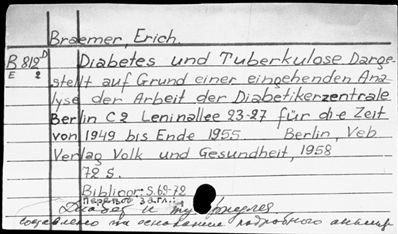 Braemer, Erich.
B 819 D
E 2
Diabetes und Tuberkulose Darge-
stellt auf Grund einer eingehenden Ana-
lyse der Arbeit der Diabetikerzentrale
Berlin C2 Leninallee 23-27 für die Zeit
von 1949 bis Ende 1955 Berlin, Veb
Verlag Volk und Gesundheit, 1958
72 s.
Bibliogr: S. 69-72
Перевод загл.:
Диабет и туберкулез
составлено на основании подробного анализа